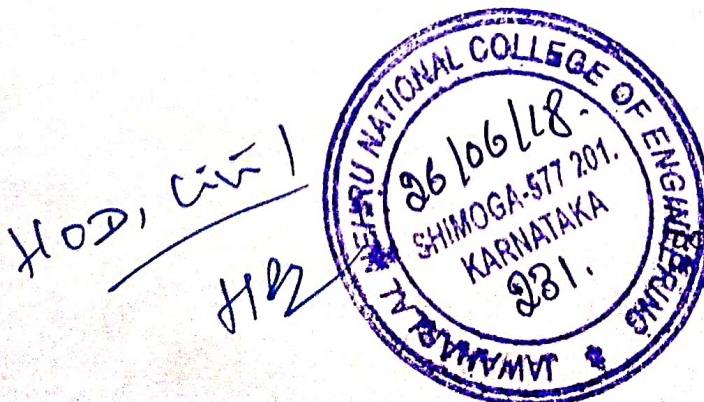 HOD, Civil
JAWAHARLAL NEHRU NATIONAL COLLEGE OF ENGINEERING
26/06/18.
SHIMOGA-577 201.
KARNATAKA
231.